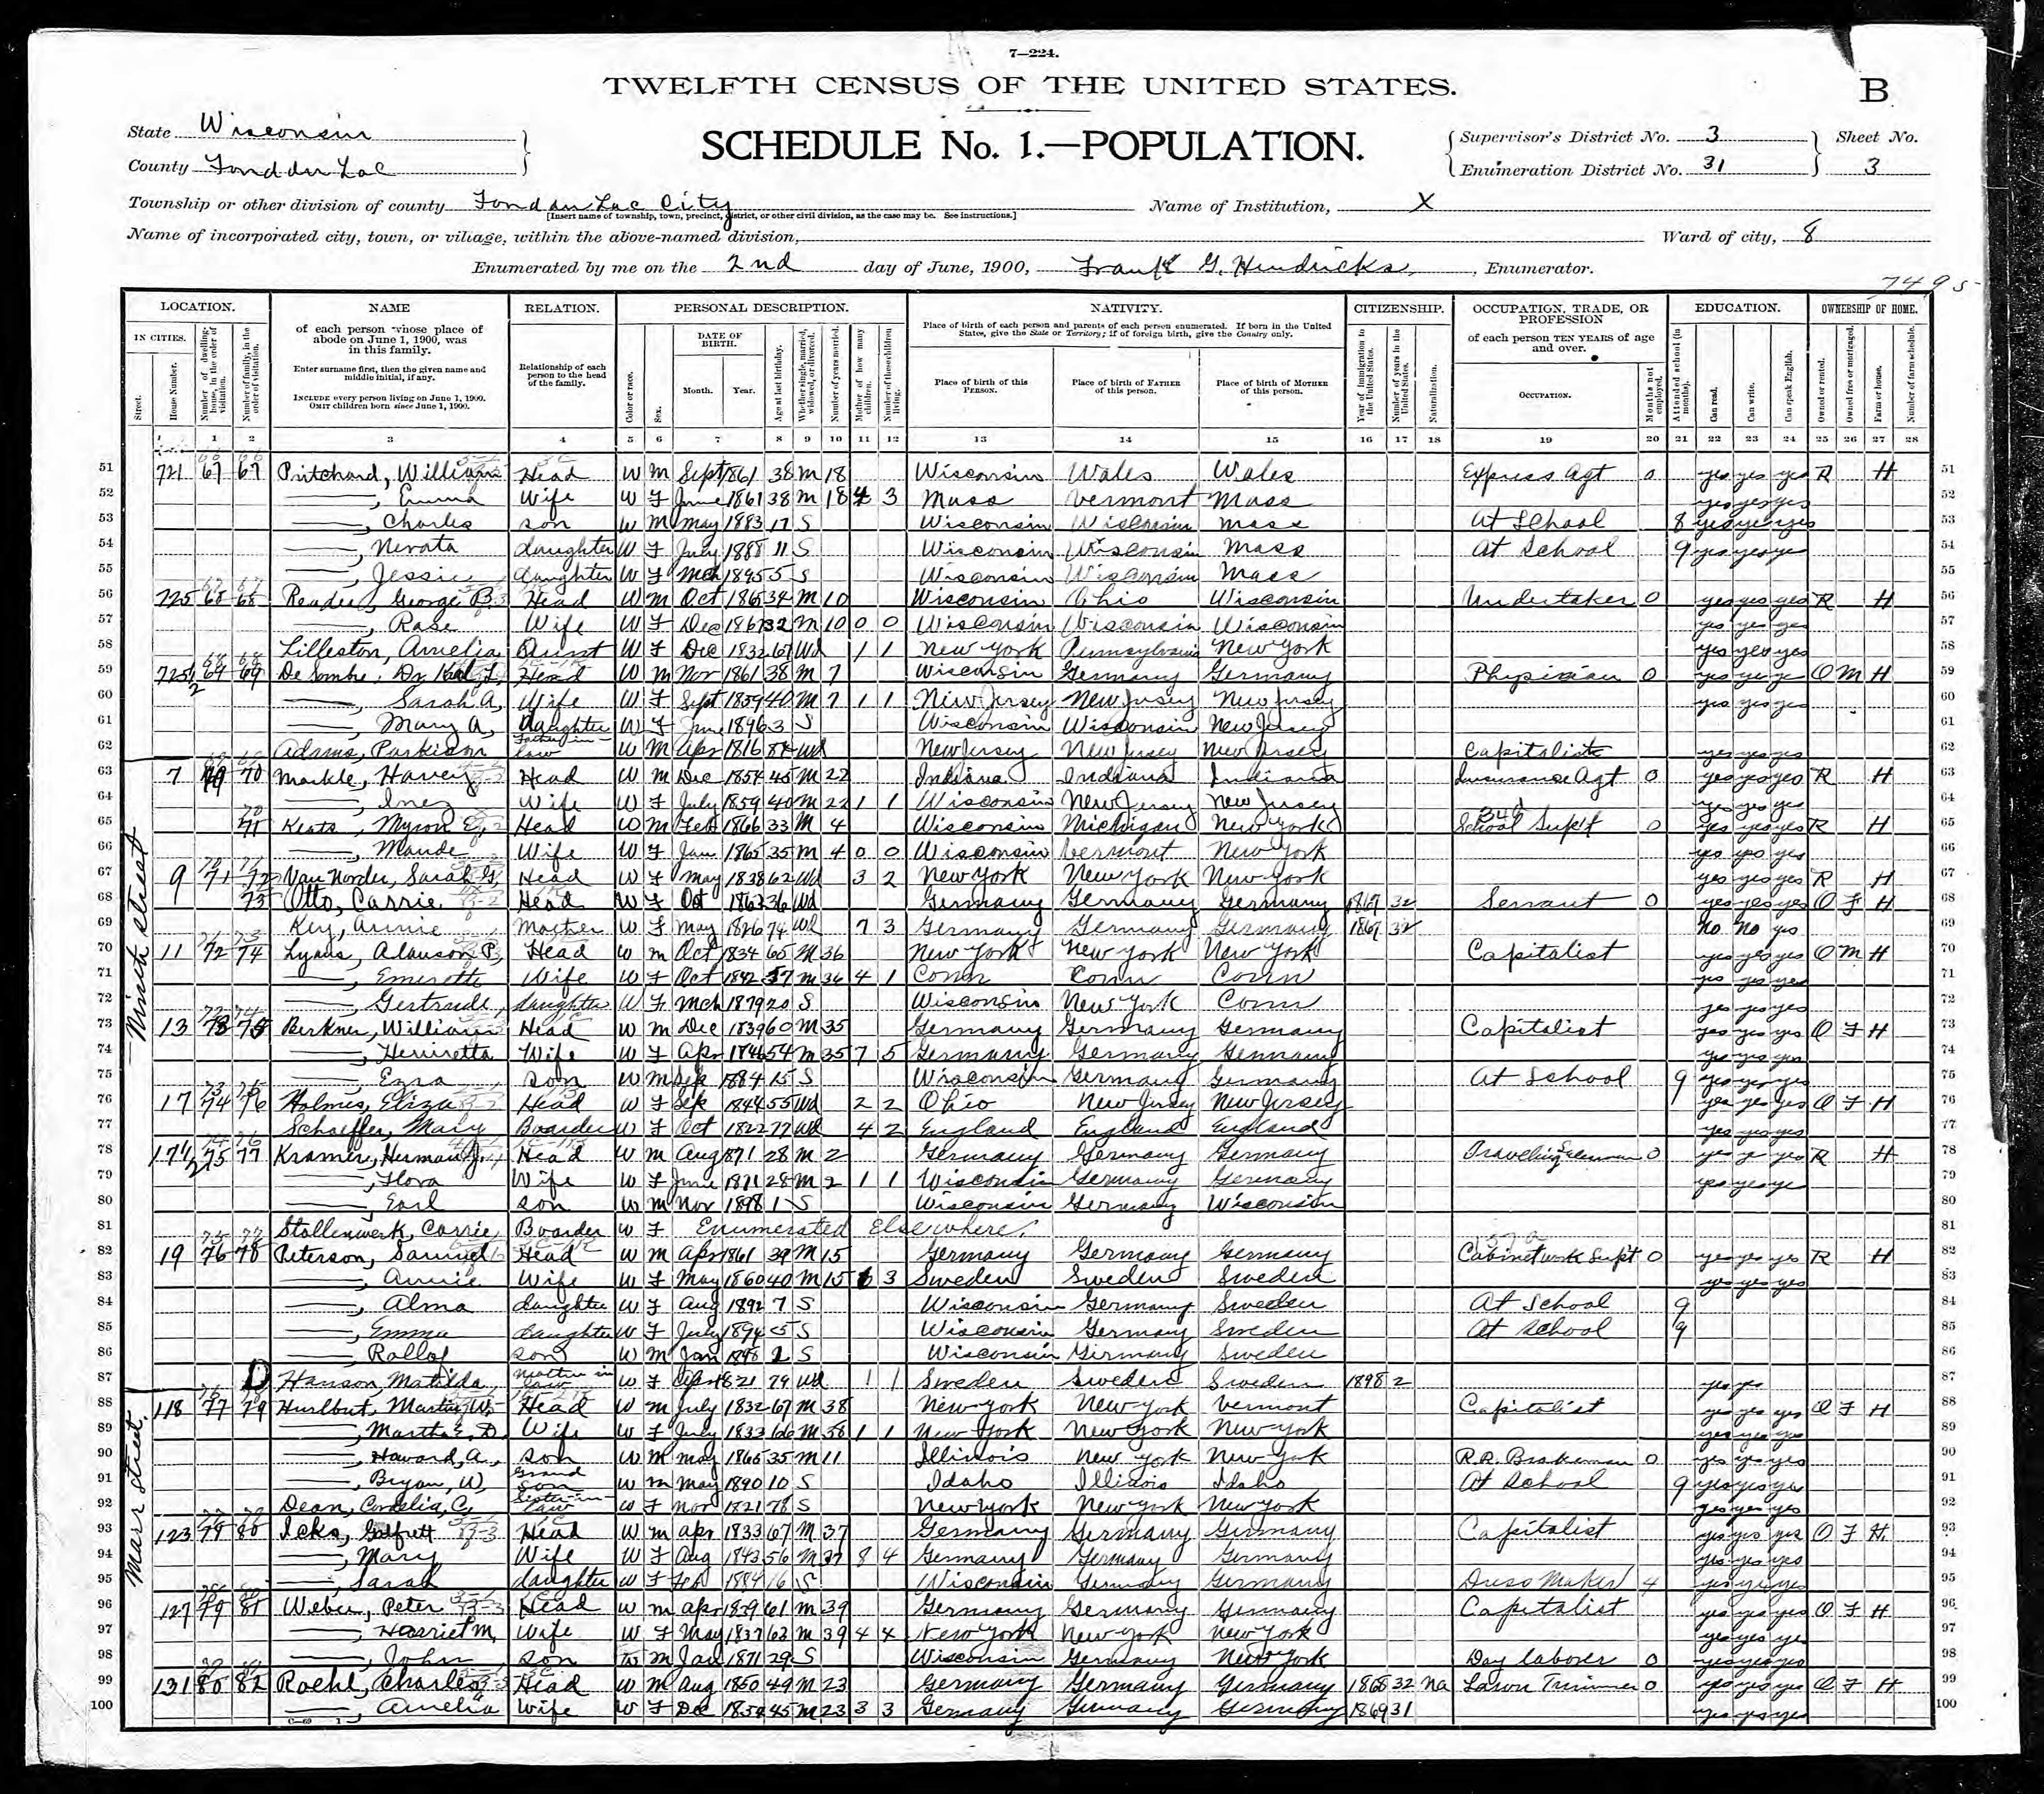 7—224.
TWELFTH CENSUS OF THE UNITED STATES.
B
State Wisconsin
County Fond du Lac
SCHEDULE No. 1.—POPULATION.
Supervisor's District No. 3 Sheet No.
Enumeration District No. 31 3
Township or other division of county Fond du Lac City Name of Institution, X
[Insert name of township, town, precinct, district, or other civil division, as the case may be. See instructions.]
Name of incorporated city, town, or village, within the above-named division, Ward of city, 8
Enumerated by me on the 2nd day of June, 1900, Frank G. Hendricks, Enumerator.
7495
LOCATION. NAME RELATION. PERSONAL DESCRIPTION. NATIVITY. CITIZENSHIP. OCCUPATION, TRADE, OR PROFESSION EDUCATION. OWNERSHIP OF HOME.
IN CITIES.
Street.
House Number.
Number of dwelling-house, in the order of visitation.
Number of family, in the order of visitation.
of each person whose place of abode on June 1, 1900, was in this family.
Enter surname first, then the given name and middle initial, if any.
INCLUDE every person living on June 1, 1900.
OMIT children born since June 1, 1900.
Relationship of each person to the head of the family.
Color or race.
Sex.
DATE OF BIRTH.
Month. Year.
Age at last birthday.
Whether single, married, widowed, or divorced.
Number of years married.
Mother of how many children.
Number of these children living.
Place of birth of each person and parents of each person enumerated. If born in the United States, give the State or Territory; if of foreign birth, give the Country only.
Place of birth of this PERSON.
Place of birth of FATHER of this person.
Place of birth of MOTHER of this person.
Year of immigration to the United States.
Number of years in the United States.
Naturalization.
of each person TEN YEARS of age and over.
OCCUPATION.
Months not employed.
Attended school (in months).
Can read.
Can write.
Can speak English.
Owned or rented.
Owned free or mortgaged.
Farm or house.
Number of farm schedule.
1 2 3 4 5 6 7 8 9 10 11 12 13 14 15 16 17 18 19 20 21 22 23 24 25 26 27 28
51 721 67 67 Pritchard, William Head W M Sept 1861 38 M 18 Wisconsin Wales Wales Express Agt 0 yes yes yes R H 51
52 ——, Emma Wife W F June 1861 38 M 18 4 3 Mass Vermont Mass yes yes yes 52
53 ——, Charles son W M May 1883 17 S Wisconsin Wisconsin Mass At School 8 yes yes yes 53
54 ——, Nevata daughter W F July 1888 11 S Wisconsin Wisconsin Mass At School 9 yes yes yes 54
55 ——, Jessie daughter W F Mch 1895 5 S Wisconsin Wisconsin Mass 55
56 725 68 68 George B. Head W M Oct 1865 34 M 10 Wisconsin Ohio Wisconsin Undertaker 0 yes yes yes R H 56
57 ——, Rose Wife W F Dec 1867 32 M 10 0 0 Wisconsin Wisconsin Wisconsin yes yes yes 57
58 Lilleston, Amelia Aunt W F Dec 1832 67 Wd 1 1 New York Pennsylvania New York yes yes yes 58
59 725 1/2 69 69 De Sombre, Dr Karl L. Head W M Nov 1861 38 M 7 Wisconsin Germany Germany Physician 0 yes yes ye O M H 59
60 ——, Sarah A, Wife W F Sept 1859 40 M 7 1 1 New Jersey New Jersey New Jersey yes yes yes 60
61 ——, Mary A, Daughter W F June 1896 3 S Wisconsin Wisconsin New Jersey 61
62 Adams, Parkison Father-in-law W M Apr 1816 84 Wd New Jersey New Jersey New Jersey Capitalist yes yes yes 62
Ninth street
63 7 70 70 Markle, Harvey Head W M Dec 1854 45 M 22 Indiana Indiana Indiana Insurance Agt 0 yes yes yes R H 63
64 ——, Inez Wife W F July 1859 40 M 22 1 1 Wisconsin New Jersey New Jersey yes yes yes 64
65 71 Keats, Myron E, Head W M Feb 1866 33 M 4 Wisconsin Michigan New York School Supt 0 yes yes yes R H 65
66 ——, Maude Wife W F Jan 1865 35 M 4 0 0 Wisconsin Vermont New York yes yes yes 66
67 9 71 72 Van Norder, Sarah G, Head W F May 1838 62 Wd 3 2 New York New York New York yes yes yes R H 67
68 73 Otto, Carrie Head W F Oct 1863 36 Wd Germany Germany Germany 1867 32 Servant 0 yes yes yes O F H 68
69 Key, Annie Mother W F May 1826 74 Wd 7 3 Germany Germany Germany 1867 32 No No yes 69
70 11 72 74 Lyons, Alanson P, Head W M Oct 1834 65 M 36 New York New York New York Capitalist yes yes yes O M H 70
71 ——, Emerette Wife W F Oct 1842 57 M 36 4 1 Conn Conn Conn yes yes yes 71
72 ——, Gertrude, daughter W F Mch 1879 20 S Wisconsin New York Conn yes yes yes 72
73 13 73 75 Berkner, William Head W M Dec 1839 60 M 35 Germany Germany Germany Capitalist yes yes yes O F H 73
74 ——, Henrietta Wife W F Apr 1846 54 M 35 7 5 Germany Germany Germany yes yes yes 74
75 ——, Ezra son W M Sep 1884 15 S Wisconsin Germany Germany At School 9 yes yes yes 75
76 17 74 76 Holmes, Eliza Head W F Sep 1844 55 Wd 2 2 Ohio New Jersey New Jersey yes yes yes O F H 76
77 Schaeffer, Mary Boarder W F Oct 1822 77 Wd 4 2 England England England yes yes yes 77
78 17 1/2 75 77 Kramer, Herman J. Head W M Aug 1871 28 M 2 Germany Germany Germany Traveling Salesman 0 yes y yes R H 78
79 ——, Flora Wife W F June 1871 28 M 2 1 1 Wisconsin Germany Germany yes yes ye 79
80 ——, Earl son W M Nov 1898 1 S Wisconsin Germany Wisconsin 80
81 Stollenwerk, Carrie, Boarder W F Enumerated Elsewhere. 81
82 19 76 78 Peterson, Samuel Head W M Apr 1861 39 M 15 Germany Germany Germany Cabinet work Supt 0 yes yes yes R H 82
83 ——, Annie Wife W F May 1860 40 M 15 6 3 Sweden Sweden Sweden yes yes yes 83
84 ——, Alma daughter W F Aug 1892 7 S Wisconsin Germany Sweden At School 9 84
85 ——, Emma daughter W F July 1894 5 S Wisconsin Germany Sweden At School 9 85
86 ——, Rollof son W M Jan 1898 2 S Wisconsin Germany Sweden 86
87 D Hanson, Matilda, Mother in law W F Apr 1821 79 Wd 1 1 Sweden Sweden Sweden 1898 2 yes yes 87
Marr street.
88 118 77 79 Hurlbut, Martin W. Head W M July 1832 67 M 38 New York New York Vermont Capitalist yes yes yes O F H 88
89 ——, Martha E. D. Wife W F July 1833 66 M 38 1 1 New York New York New York yes yes yes 89
90 ——, Howard, A., son W M May 1865 35 M 11 Illinois New York New York R.R. Brakeman 0 yes yes yes 90
91 ——, Bryan, W, Grand son W M May 1890 10 S Idaho Illinois Idaho At School 9 yes yes yes 91
92 Dean, Cordelia, C, Sister-in-law W F Nov 1821 78 S New York New York New York yes yes yes 92
93 123 78 80 Icks, Head W M Apr 1833 67 M 37 Germany Germany Germany Capitalist yes yes yes O F H. 93
94 ——, Mary Wife W F Aug 1843 56 M 37 8 4 Germany Germany Germany yes yes yes 94
95 ——, Sarah daughter W F Feb 1884 16 S Wisconsin Germany Germany Dress Maker 4 yes yes yes 95
96 127 79 81 Weber, Peter Head W M Apr 1839 61 M 39 Germany Germany Germany Capitalist yes yes yes O F H 96
97 ——, Harriet M, Wife W F May 1837 62 M 39 4 4 New York New York New York yes yes ye 97
98 ——, John son W M Jan 1871 29 S Wisconsin Germany New York Day laborer 0 yes yes yes 98
99 131 80 82 Roehl, Charles Head W M Aug 1850 49 M 23 Germany Germany Germany 1868 32 Na Trimmer 0 yes yes yes O F H 99
100 ——, Amelia Wife W F Dec 1854 45 M 23 3 3 Germany Germany Germany 1869 31 yes yes yes 100